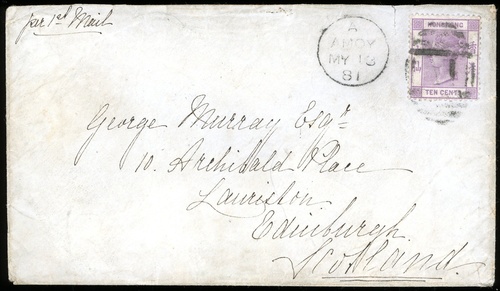 per 1st Mail
A
AMOY
MY 16
81
HONG KONG
TEN CENTS
George Murray Esqr
10. Archibald Place
Lauriston
Edinburgh
Scotland